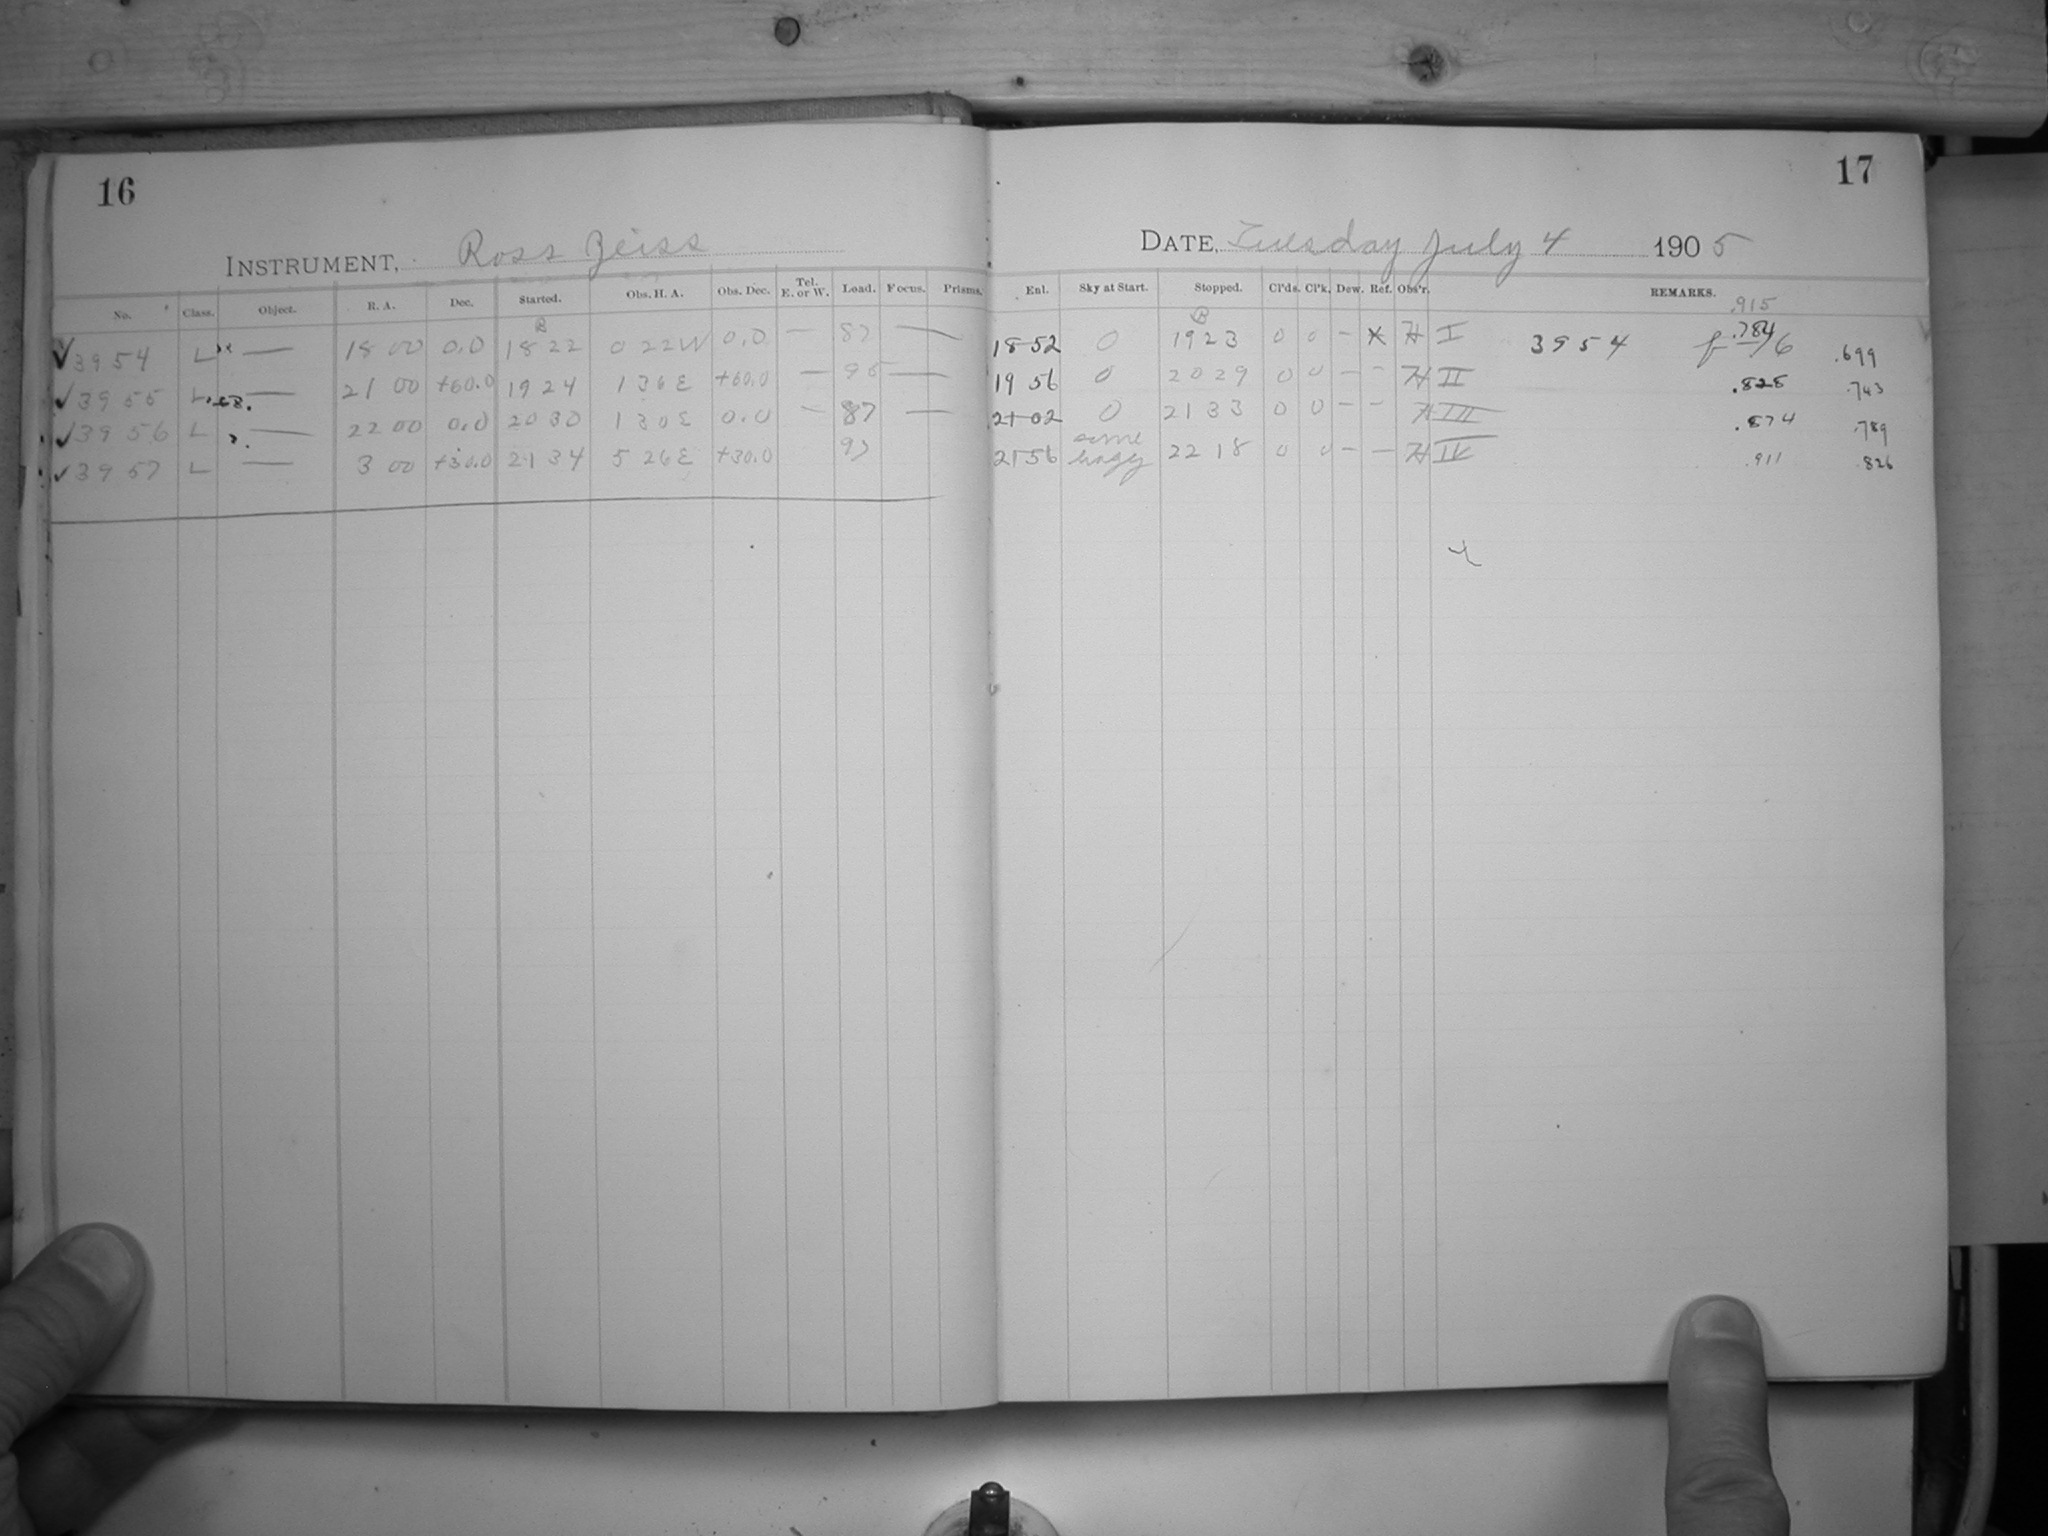 16
INSTRUMENT, Ross Zeiss
No. Class. Object. R. A. Dec. Started. Obs. H. A. Obs. Dec. Tel. E. or W. Load. Focus. Prisms.
✓3954 L — 18 00 0.0 18 22 0 22 W 0.0 — 87 —
✓3955 L — 21 00 +60.0 19 24 1 36 E +60.0 — 95 —
✓3956 L — 22 00 0.0 20 30 1 30 E 0.0 — 87 —
✓3957 L — 3 00 +30.0 21 34 5 26 E +30.0 93
17
DATE, Tuesday July 4 1905
Enl. Sky at Start. Stopped. Cl'ds. Cl'k. Dew. Ref. Obs'r. REMARKS.
.915
18 52 0 19 23 0 0 – X H I 3954 .784 .699
19 56 0 20 29 0 0 – – H II .828 .743
21 02 0 21 33 0 0 – – H III .874 .789
21 56 some hazy 22 18 0 0 – – H IV .911 .826